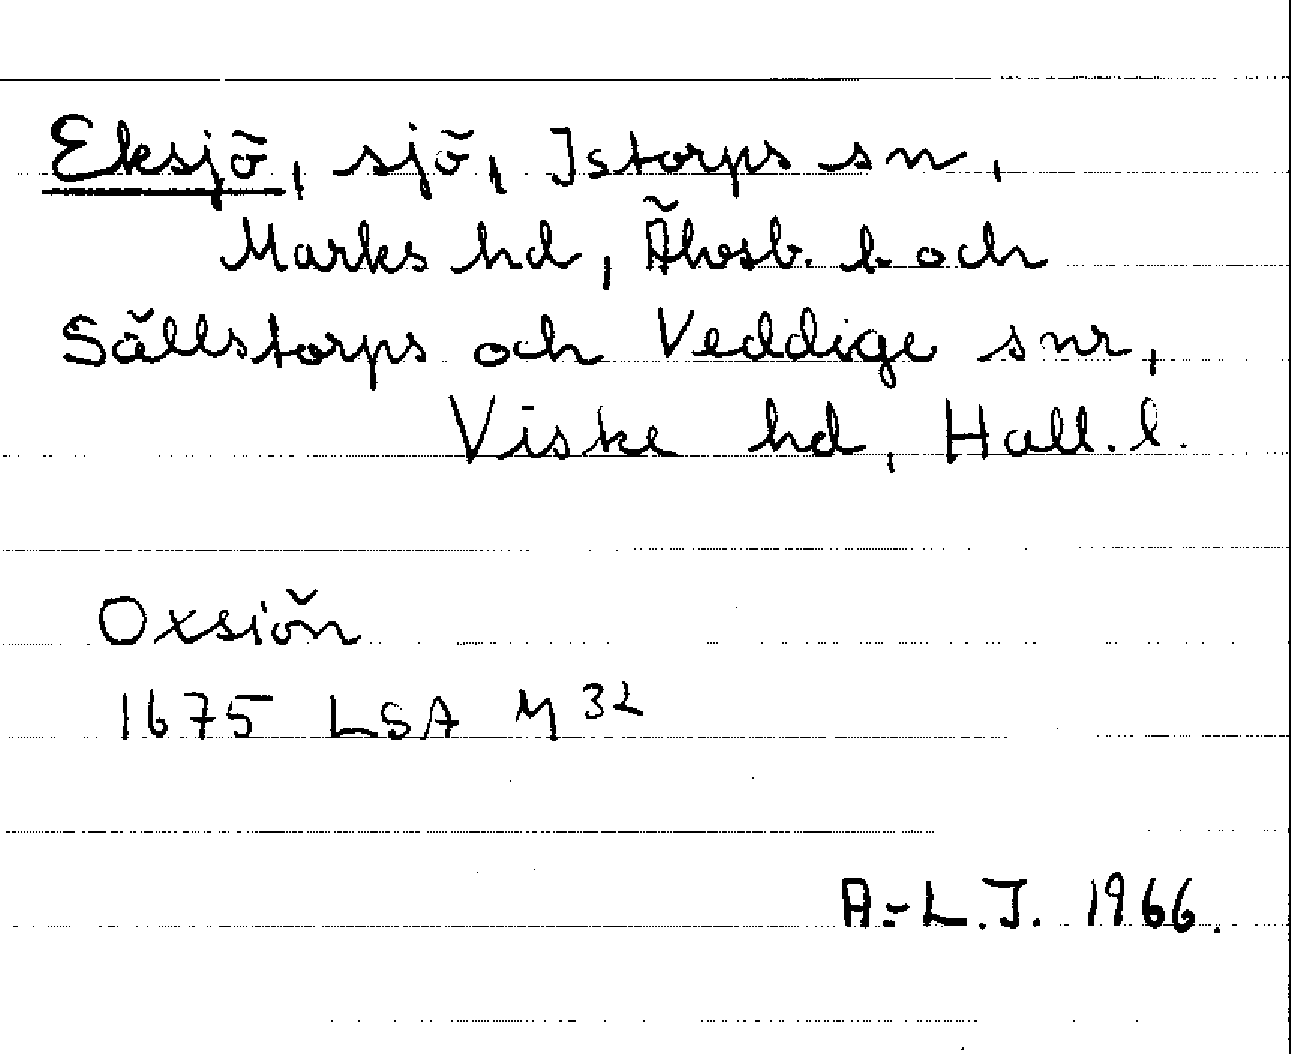 Eksjö, sjö, Istorps sn,
Marks hd, Älvsb. l. och
Sällstorps och Veddige snr,
Viske hd, Hall. l.
Oxsiön
1675 LSA M 32
A-L.J. 1966.